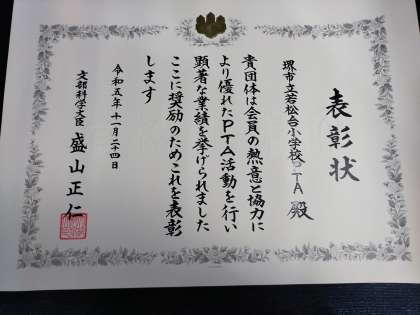 表彰状
堺市立若松台小学校PTA 殿
貴団体は会員の熱意と協力に
より優れたPTA活動を行い
顕著な業績を挙げられました
ここに奨励のためこれを表彰
します
令和五年十一月二十四日
文部科学大臣 盛山正仁